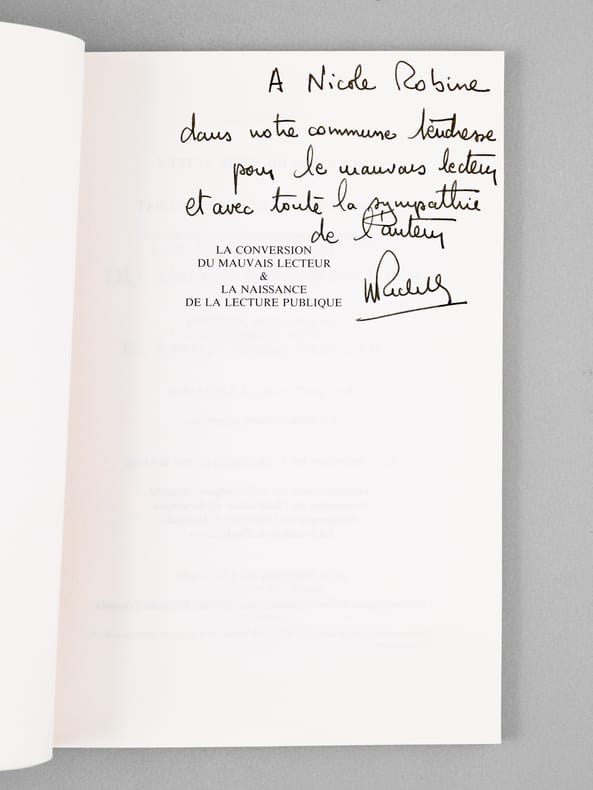 A Nicole Robine
dans notre commune tendresse
pour le mauvais lecteur
et avec toute la sympathie
de l'auteur
LA CONVERSION
DU MAUVAIS LECTEUR
&
LA NAISSANCE
DE LA LECTURE PUBLIQUE